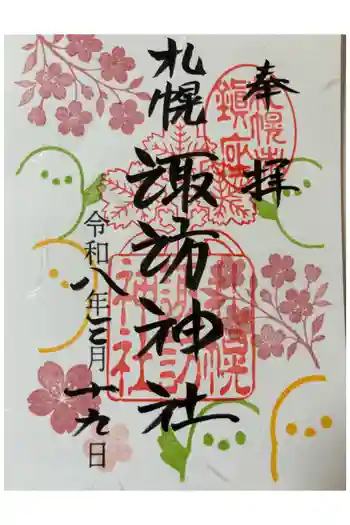 奉拝
札幌鎮座
札幌諏訪神社
札幌諏訪神社
令和八年三月十九日